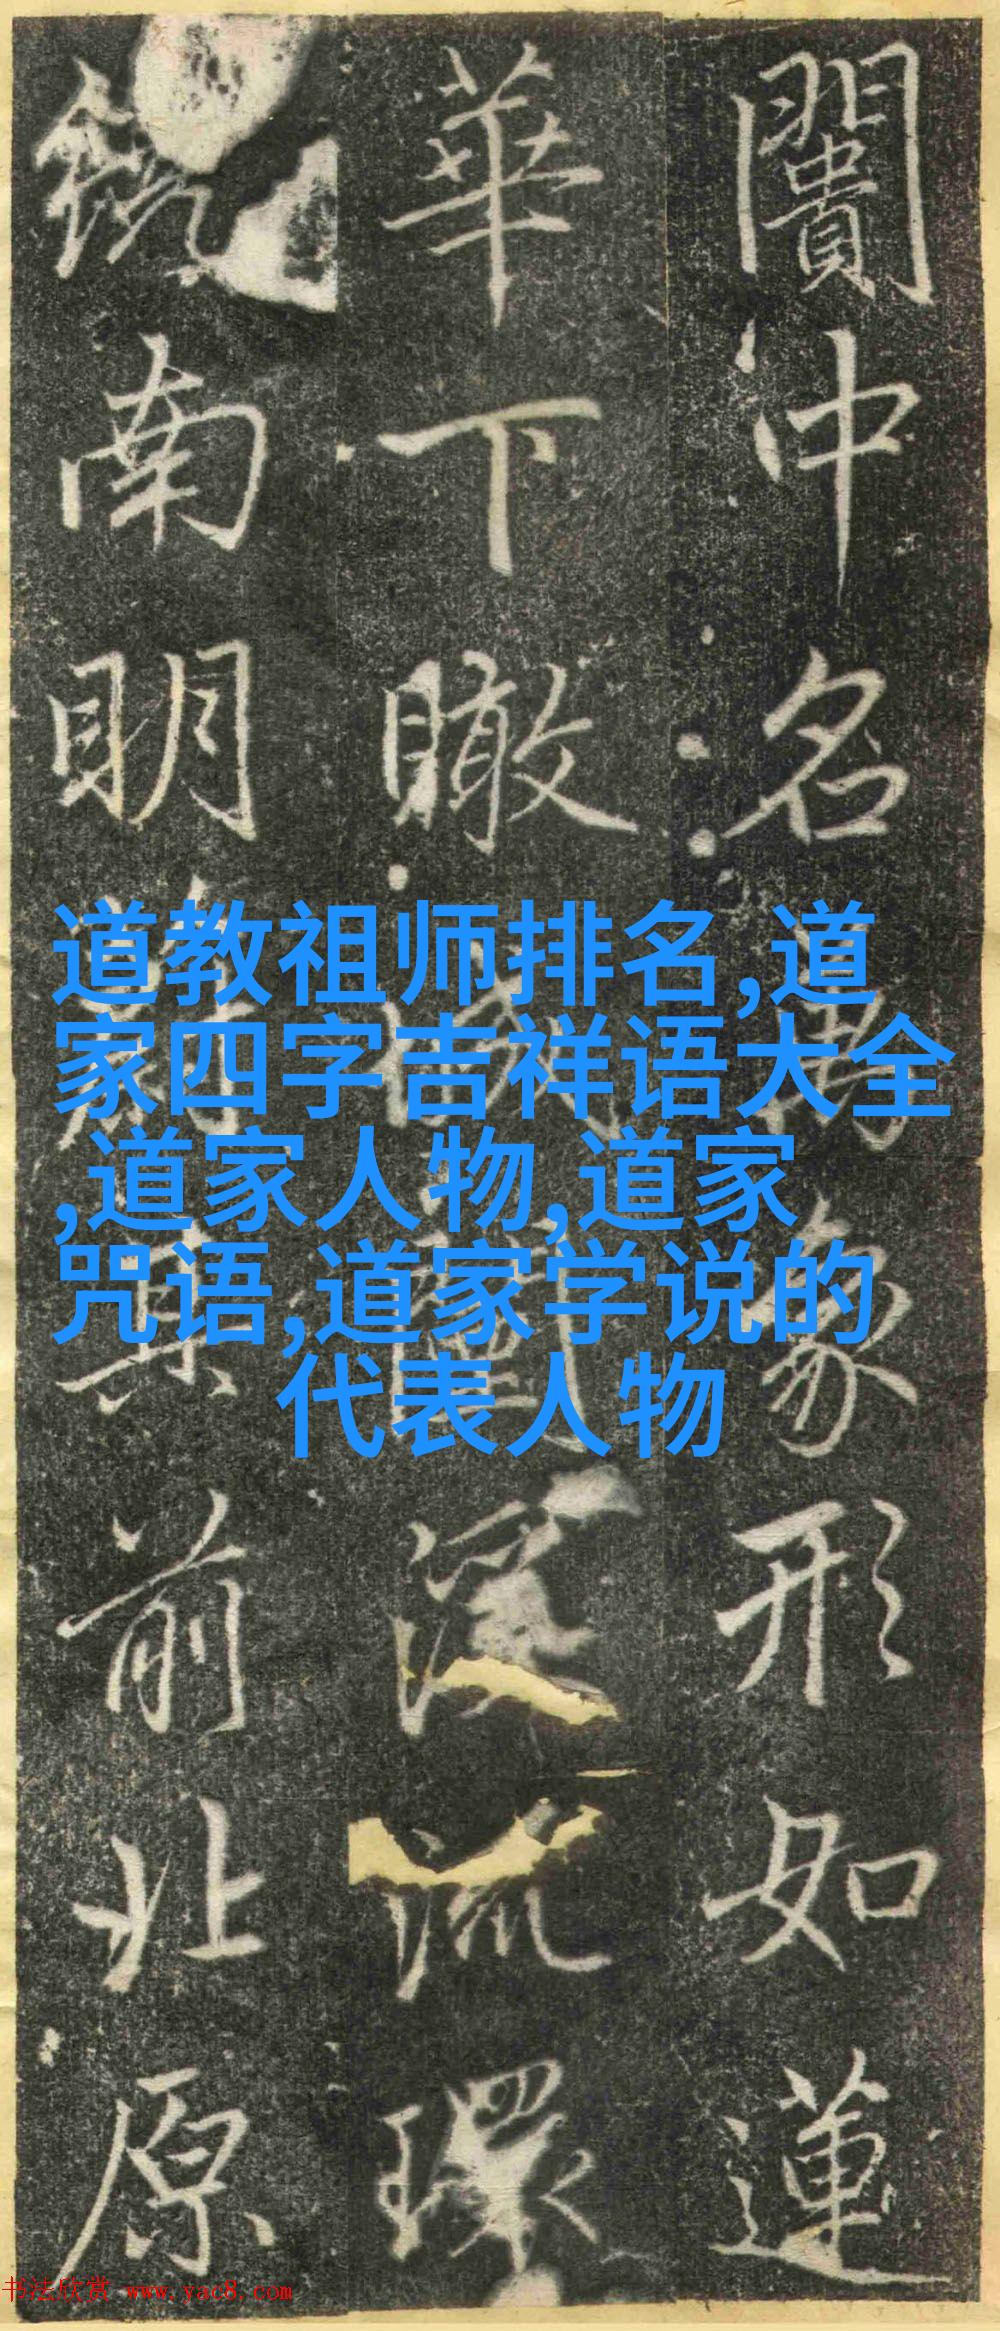 闠中名象形如蓮
華下瞰環
南明其前北原
道教祖师排名,道
家四字吉祥语大全
,道家人物,道家
咒语,道家学说的
代表人物
书法欣赏 www.yac8.com